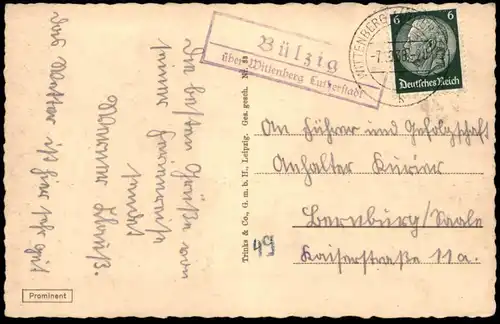 Bülzig
über Wittenberg Lutherstadt
WITTENBERG
6 6
Deutsches Reich
An Führer und Gefolgschaft
Anhalter Kurier
Bernburg/Saale
Kaiserstraße 11a.
Die besten Grüße von
seiner Heimreise
sendet
Das Wetter ist hier sehr gut
Trinks & Co., G. m. b. H., Leipzig. Ges. gesch. Nr. 53
49
Prominent